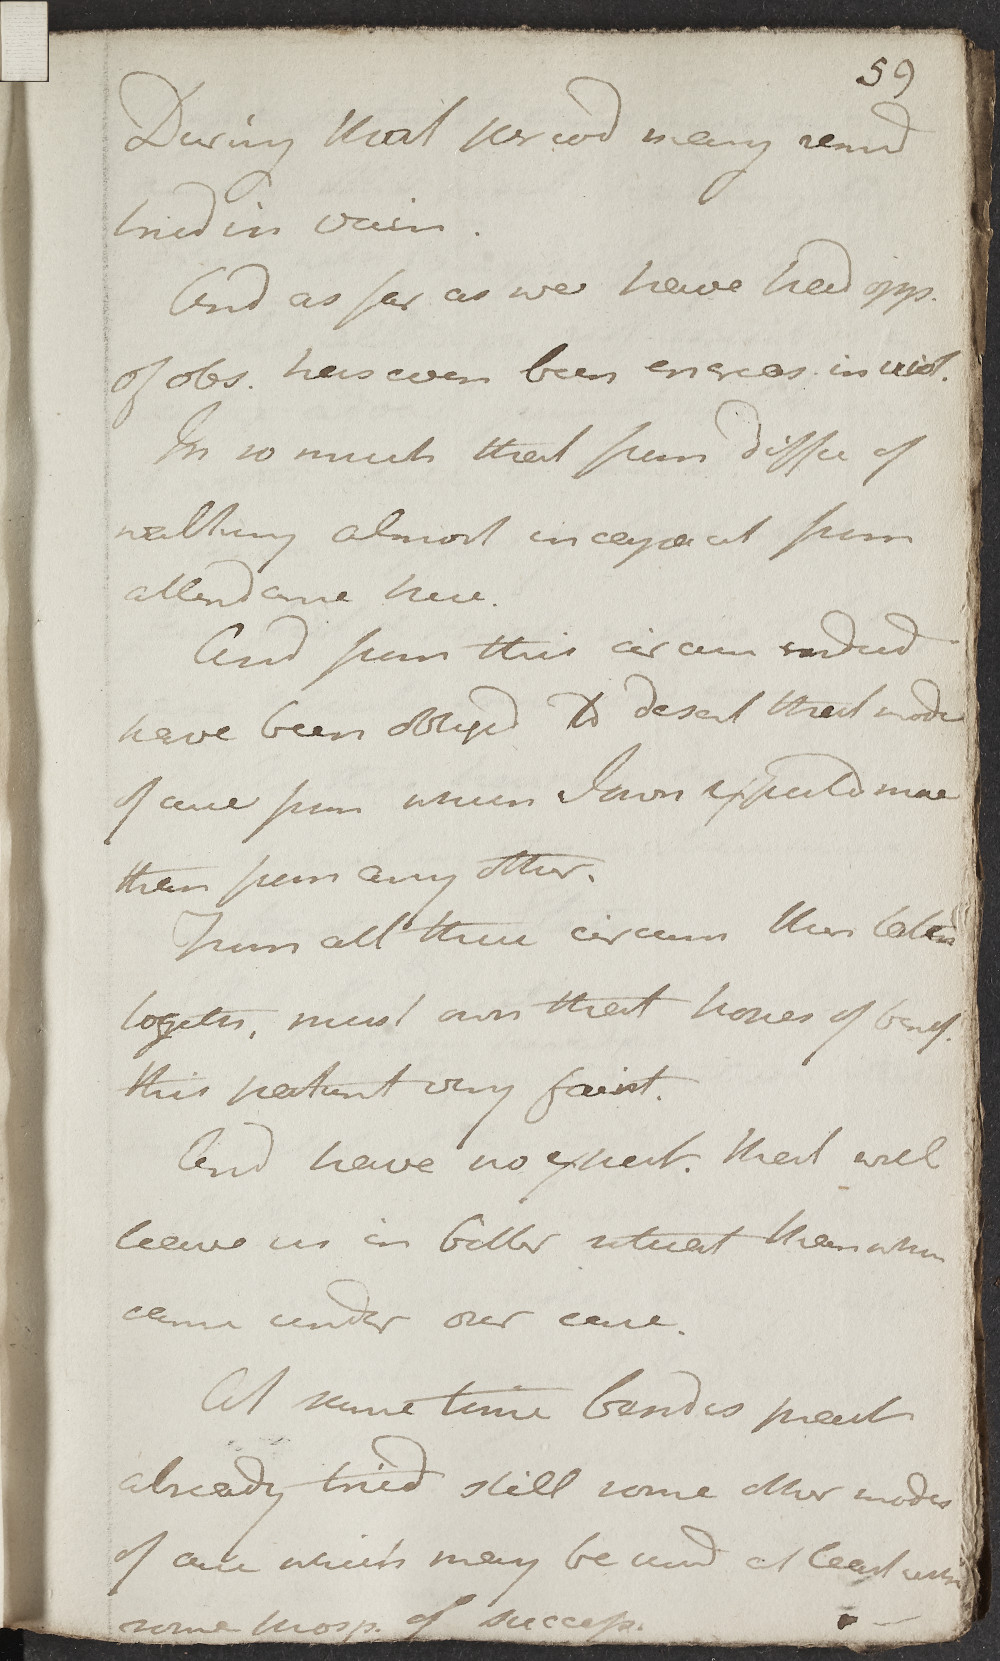 59
During that period many remd
tried in vain.
And as far as we have had opp.
of obs. has even been encreas. in viol.
In so much that from diffic of
walking almost incapacit from
attendance here.
And from this circum indeed
have been obliged to desert that mode
of cure from which I own expected more
than from any other.
From all these circum then taken
together, must own that hopes of benef.
this patient very faint.
And have no expect. that will
leave us in better situat than when
came under our care.
At same time besides pract
already tried still some other modes
of cure which may be used at least with
some prosp. of success.